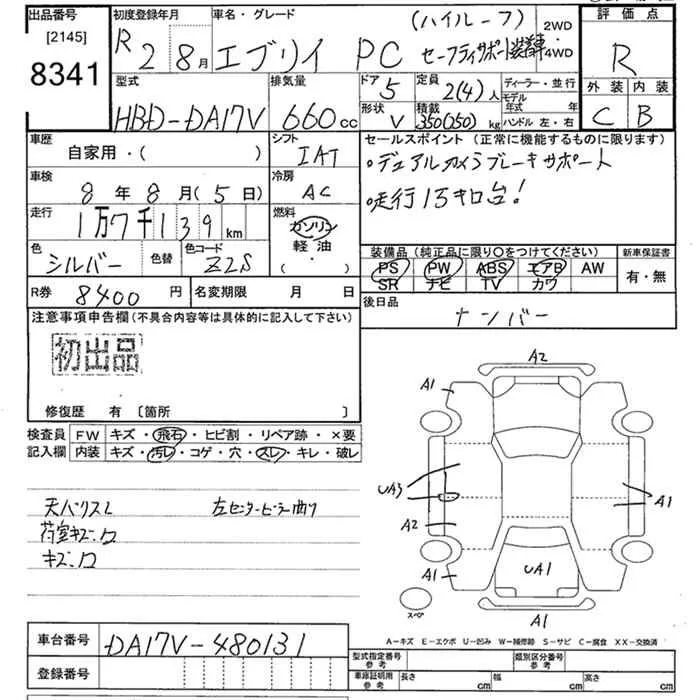 出品番号 初度登録年月 車名・グレード 評価点
[2145] R 2 8月 エブリイ PC (ハイルーフ) セーフティサポート装着車 2WD・4WD R
8341 型式 排気量 ドア 5 定員 2(4)人 ディーラー・並行 外装 内装
HBD-DA17V 660cc 形状 V 積載 350(250)kg モデル年式 年 ハンドル 左・右 C B
車歴 シフト セールスポイント (正常に機能するものに限ります)
自家用・( ) IAT ・デュアルカメラブレーキサポート
車検 冷房 ・走行1万キロ台!
8年8月(5日) AC
走行 燃料
1万7千139km ガソリン
軽油
( ・ )
色 シルバー 色替 色コード Z2S 装備品 (純正品に限り○をつけてください) 新車保証書
PS PW ABS エアB AW 有・無
SR ナビ TV カワ
R券 8400円 名変期限 月 日 後日品
ナンバー
注意事項申告欄 (不具合内容等は具体的に記入して下さい)
初出品
修復歴 有 〔箇所 〕
検査員 FW キズ・飛石・ヒビ割・リペア跡・×要
記入欄 内装 キズ・汚レ・コゲ・穴・スレ・キレ・破レ
天バリスレ 左センターピラー曲り
荷室キズ・凹
キズ・凹
A2
A1
UA3
A2
A1
A1
UA1
スペア
A1
A-キズ E-エクボ U-凹み W-補修跡 S-サビ C-腐食 XX-交換済
車台番号 DA17V-480131
登録番号
型式指定番号 参考 類別区分番号 参考
車庫証明用 参考 長さ cm 幅 cm 高さ cm